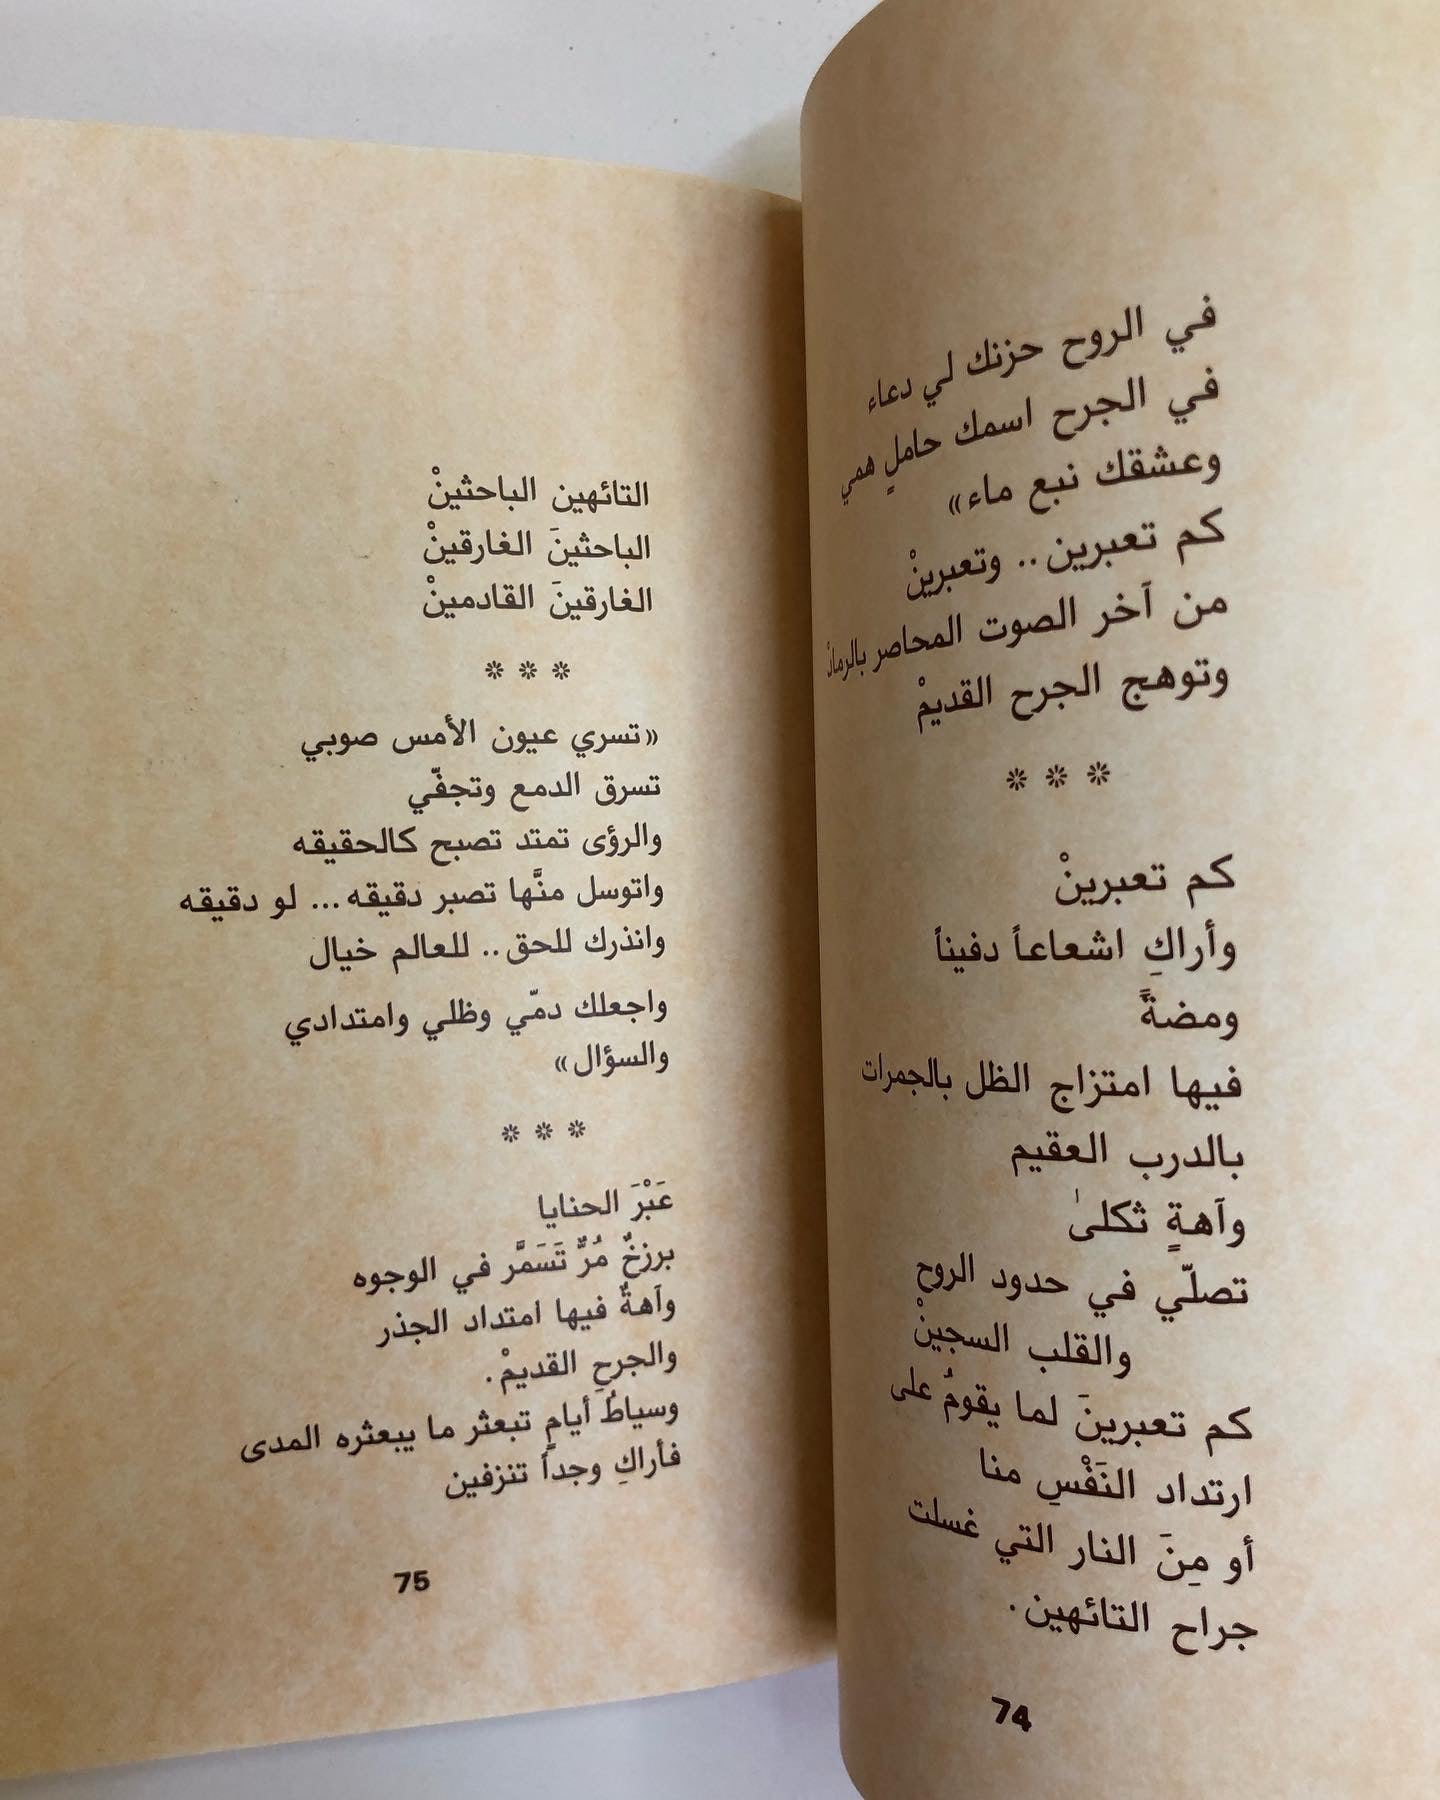 في الروح حزنك لي دعاء
في الجرح اسمك حاملٍ همي
وعشقك نبع ماء»
كم تعبرين.. وتعبرينْ
من آخر الصوت المحاصر
وتوهج الجرح القديمْ
❊ ❊ ❊
كم تعبرينْ
وأراكِ اشعاعاً دفيناً
ومضةً
فيها امتزاج الظل بالجمرات
بالدرب العقيم
وآهةٍ ثكلىٰ
تصلّي في حدود الروح
والقلب السجينْ
كم تعبرينَ لما يقومُ على
ارتداد النَفْسِ منا
أو مِنَ النار التي غسلت
جراح التائهين.
74
التائهين الباحثينْ
الباحثينَ الغارقينْ
الغارقينَ القادمينْ
❊ ❊ ❊
«تسري عيون الأمس صوبي
تسرق الدمع وتجفّي
والرؤى تمتد تصبح كالحقيقه
واتوسل منَّها تصبر دقيقه... لو دقيقه
وانذرك للحق.. للعالم خيال
واجعلك دمّي وظلي وامتدادي
والسؤال»
❊ ❊ ❊
عَبْرَ الحنايا
برزخٌ مُرٌّ تَسَمَّر في الوجوه
وآهةٌ فيها امتداد الجذر
والجرحِ القديمْ.
وسياطُ أيامٍ تبعثر ما يبعثره المدى
فأراكِ وجداً تنزفين
75